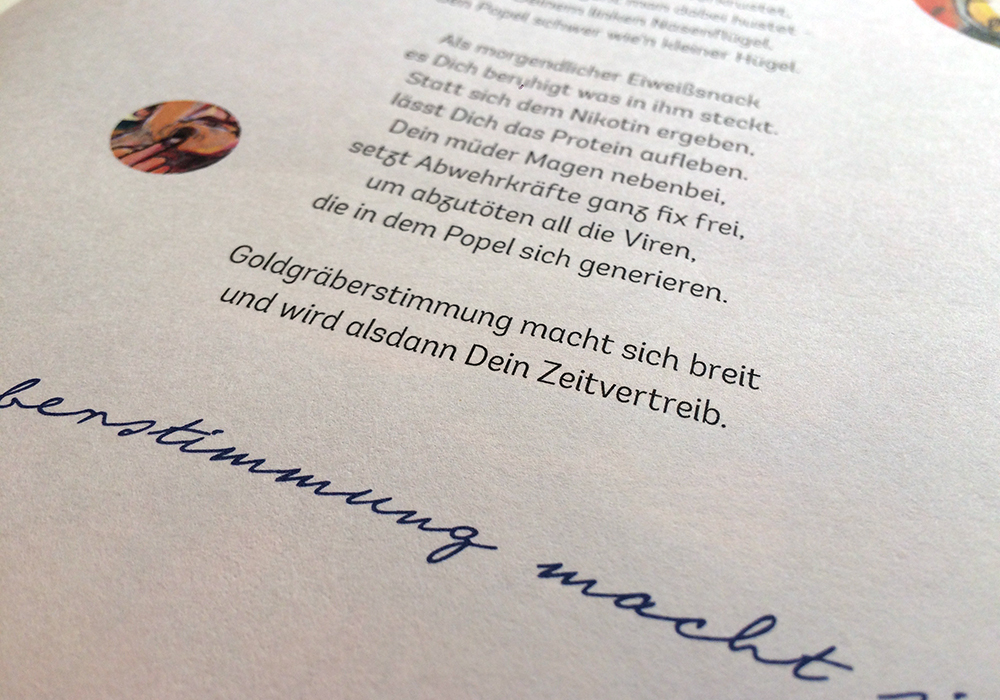 man dabei hustet,
Deinem linken Nasenflügel,
den Popel schwer wie'n kleiner Hügel.
Als morgendlicher Eiweißsnack
es Dich beruhigt was in ihm steckt.
Statt sich dem Nikotin ergeben.
lässt Dich das Protein aufleben.
Dein müder Magen nebenbei,
setzt Abwehrkräfte ganz fix frei,
um abzutöten all die Viren,
die in dem Popel sich generieren.
Goldgräberstimmung macht sich breit
und wird alsdann Dein Zeitvertreib.
berstimmung macht